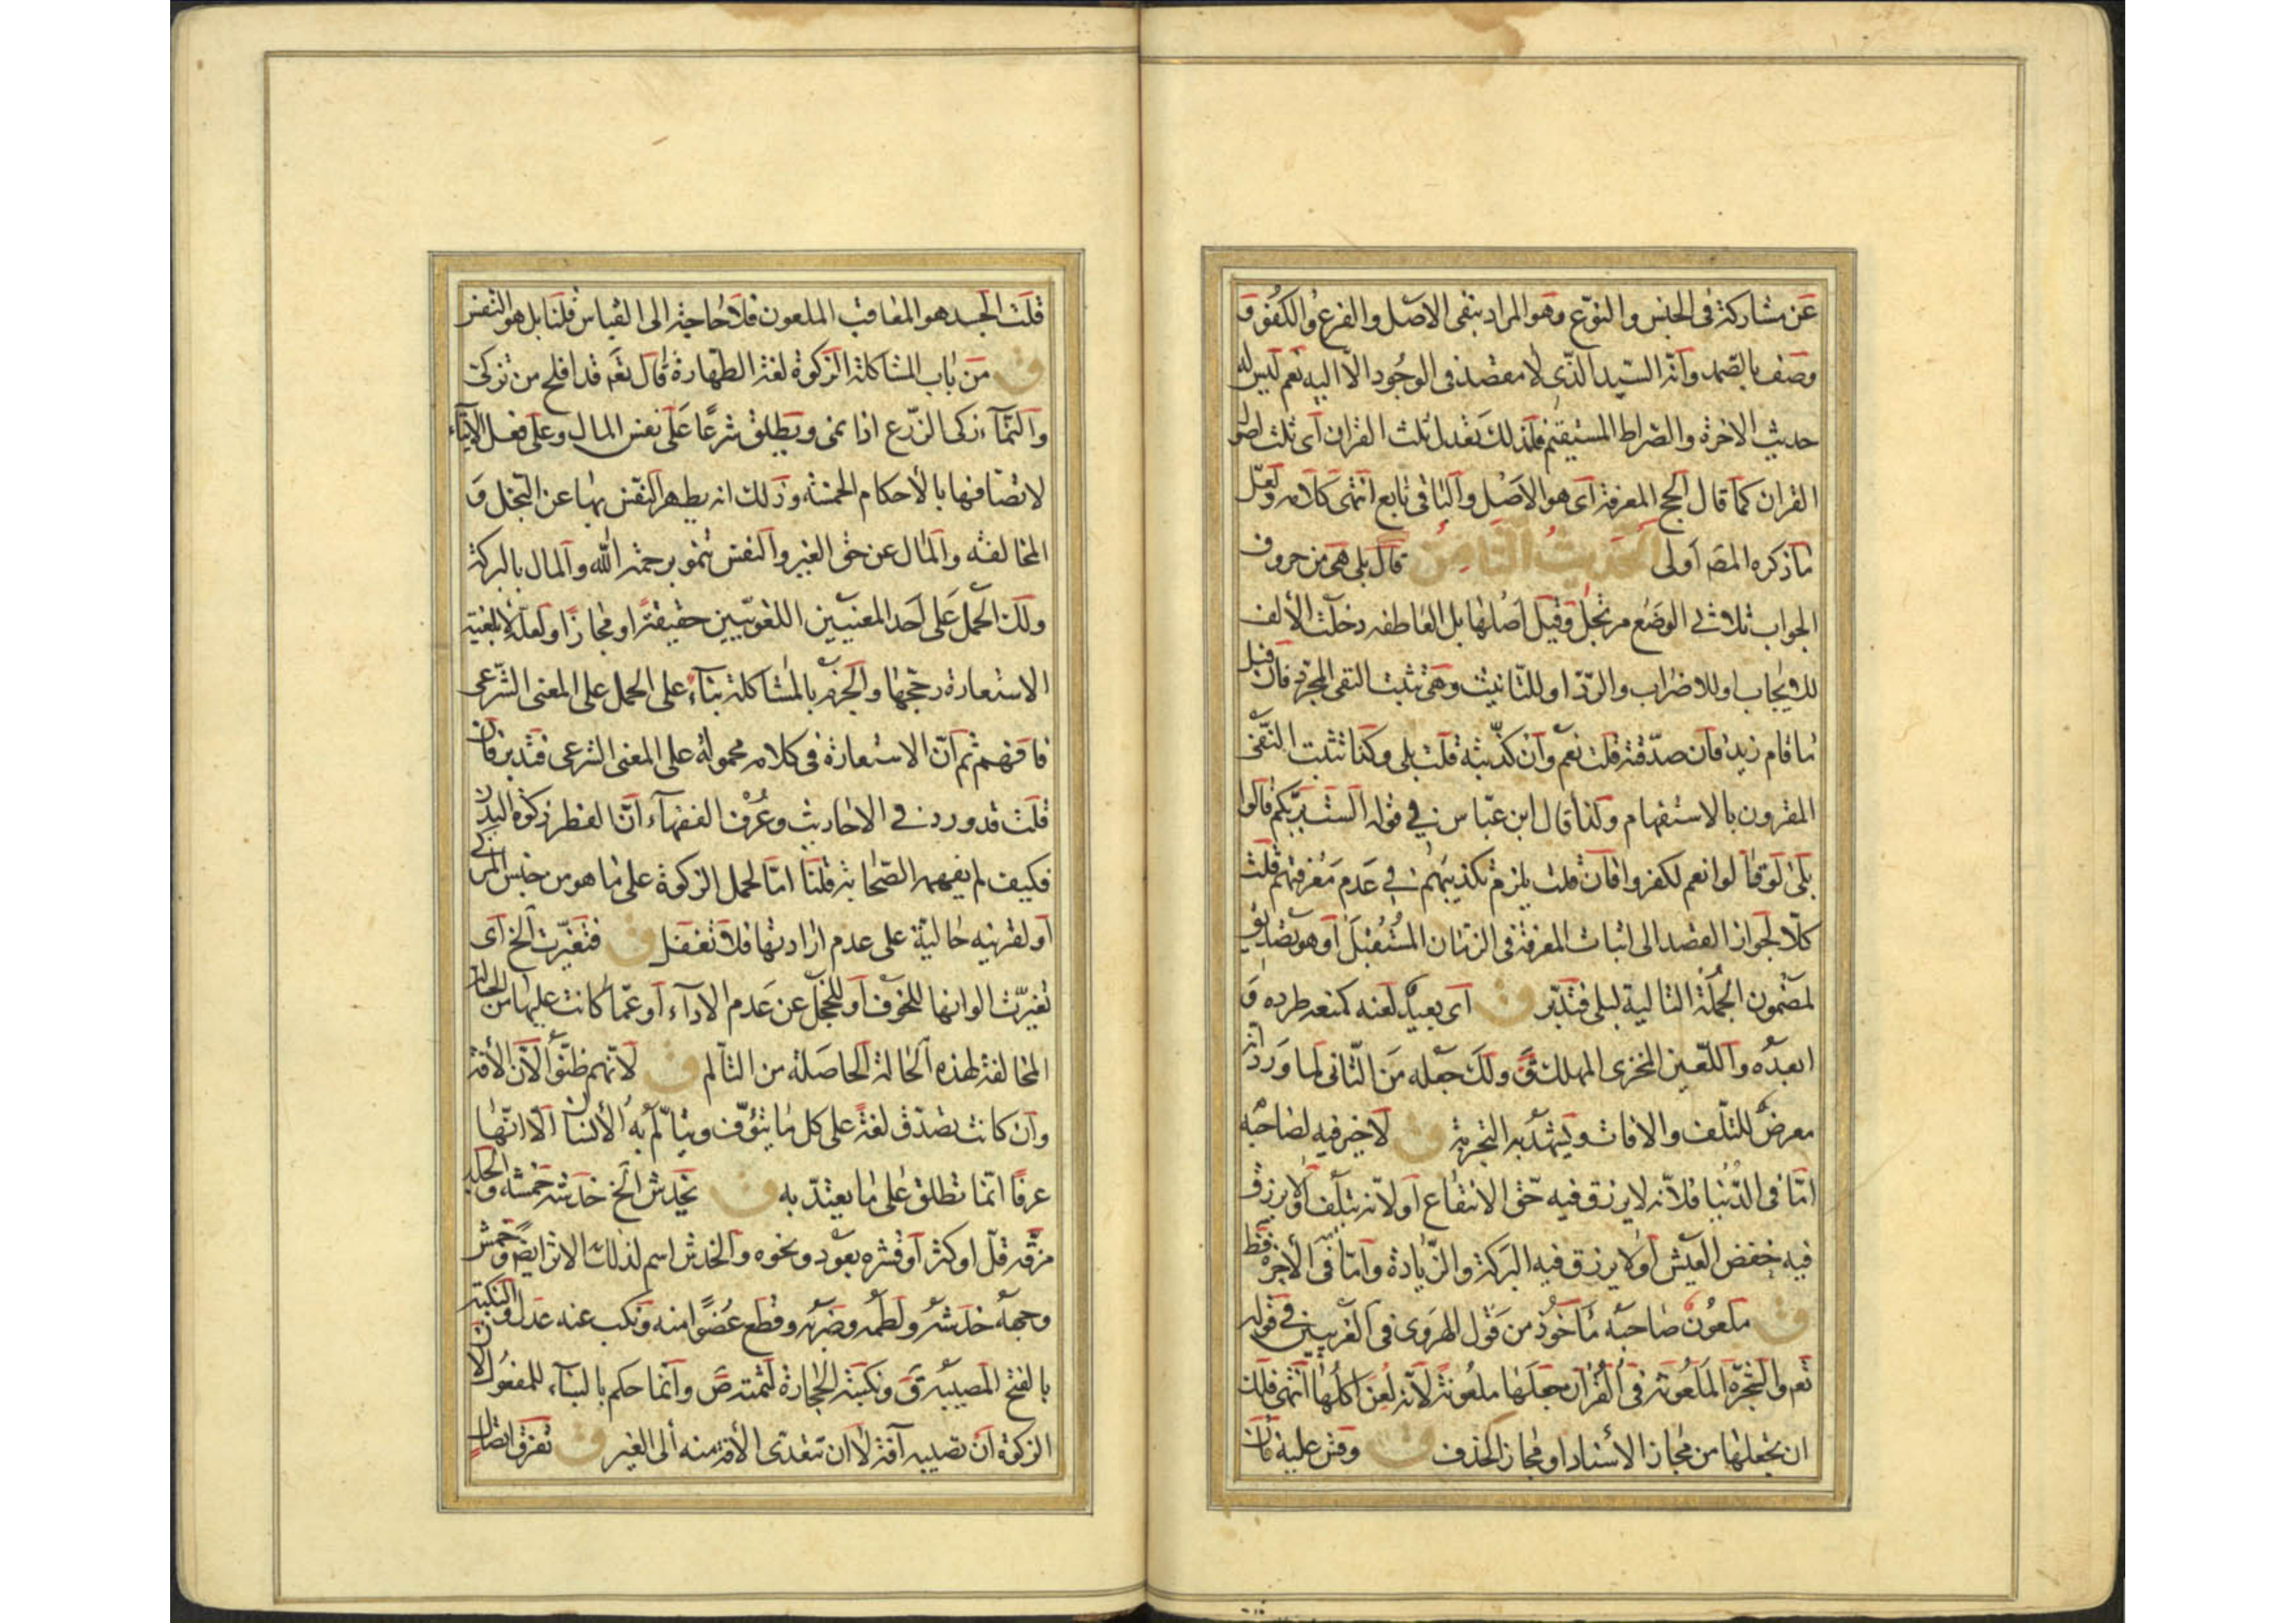 عن مشاركة فى الجنس والنوع وهو المراد بنفى الاصل والفرع والكفو و
وصف بالصمد وانه السيد الذى لا مقصد فى الوجود الا اليه نعم ليس لله
حديث الاخرة والصراط المستقيم فلذلك تعدل ثلث القران اى ثلث اصول
القران كما قال الحج المعرفة اى هو الاصل والباقى تابع انتهى كلامه ولعل
ما ذكره المصَ اولى الحديث الثامن قال بلى هى من حروف
الجواب ثلاثى الوضع مرتجل وقيل اصلها بل العاطفه دخلت الألف
للايجاب او للاضراب والرد او للتانيث وهى تثبت النفى المجرد فان قيل
ما قام زيد فان صدقته قلت نعم وان كذبته قلت بلى وكذا تثبت النفى
المقرون بالاستفهام وكذا قال ابن عباس فى قوله الست بربكم قالوا
بلى لو قالوا نعم لكفروا فان قلت يلزم تكذيبهم فى عدم معرفتهم قلت
كلا لجواز القصد الى اثبات المعرفة فى الزمان المستقبل او هو تصديق
لمضمون الجملة التالية لبلى فتدبر ق اى بعيد لعنه كمنعه طرده و
ابعده واللعين المخزى المهلك قَ ولك جعله من الثانى لما ورد انه
معرض للتلف والافات ويشهد به التجربة ق لا خير فيه لصاحبه
اما فى الدنيا فلانه لا يرزق فيه حق الانتفاع او لانه يتلف او لا يرزق
فيه خفض العيش او لا يرزق فيه البركة والزيادة واما فى الأخرة فقط
ق ملعون صاحبه مأخوذ من قول الهروى فى الغريبين فى قوله
تعَ والشجرة الملعونة فى القران جعلها ملعونة لانه لعن اكلها انتهى فلك
ان تجعلها من مجاز الأسناد او مجاز الحذف ق وقس عليه فان
قلت الجسد هو المعاقب الملعون فلا حاجة الى القياس قلنا بل هو النفس
ق من باب المشاكلة الزكوة لغة الطهارة قال تعَ قد افلح من تزكى
والنماء زكى الزرع اذا نمى ويطلق شرعا على نفس المال وعلى فعل الايتاء
لاتصافها بالأحكام الخمسة وذلك انه يطهر النفس بها عن البخل و
المخالفة والمال عن حق الغير والنفس تنمو برحمة الله والمال بالبركة
ولك الحمل على احد المعنيين اللغويين حقيقة او مجازا ولعل لابلغية
الاستعارة رجحها والجزم بالمشاكلة بناء على الحمل على المعنى الشرعى
فافهم ثم ان الاستعارة فى كلامه محمولة على المعنى الشرعى فتدبر فان
قلت قد ورد فى الاحاديث وعرف الفقهاء ان الفطر زكوة البدن
فكيف لم يفهمه الصحابة قلنا اما لحمل الزكوة على ما هو من جنس المزكى
او لقرينه حالية على عدم ارادتها فلا تغفل ق فتغيرت الخ اى
تغيرت الوانها للخوف او للخجل عن عدم الاداء او عما كانت عليها من الحال
المخالفة لهذه الحالة الحاصلة من التألم ق لانهم ظنوا لان الأفة
وان كانت تصدق لغة على كل ما يتؤف ويتالم به الانسان الا انها
عرفا انما تطلق على ما يعتد به ق يخدش الخ خدشه خمشه والجلد
مزقه قل او كثر او قشره بعود ونحوه والخدش اسم لذلك الاثر ايضَ وخمش
وجهه خدشه ولطمه وضربه وقطع عضوا منه ونكب عنه عدل والنكبة
بالفتح المصيبة قَ ونكبته الحجارة لثمته صَ وانما حكم بالبناء للمفعول لان
الزكوة ان تصيبه آفة لا ان تتعدى الأفة منه الى الغير ق تفرق اتصال